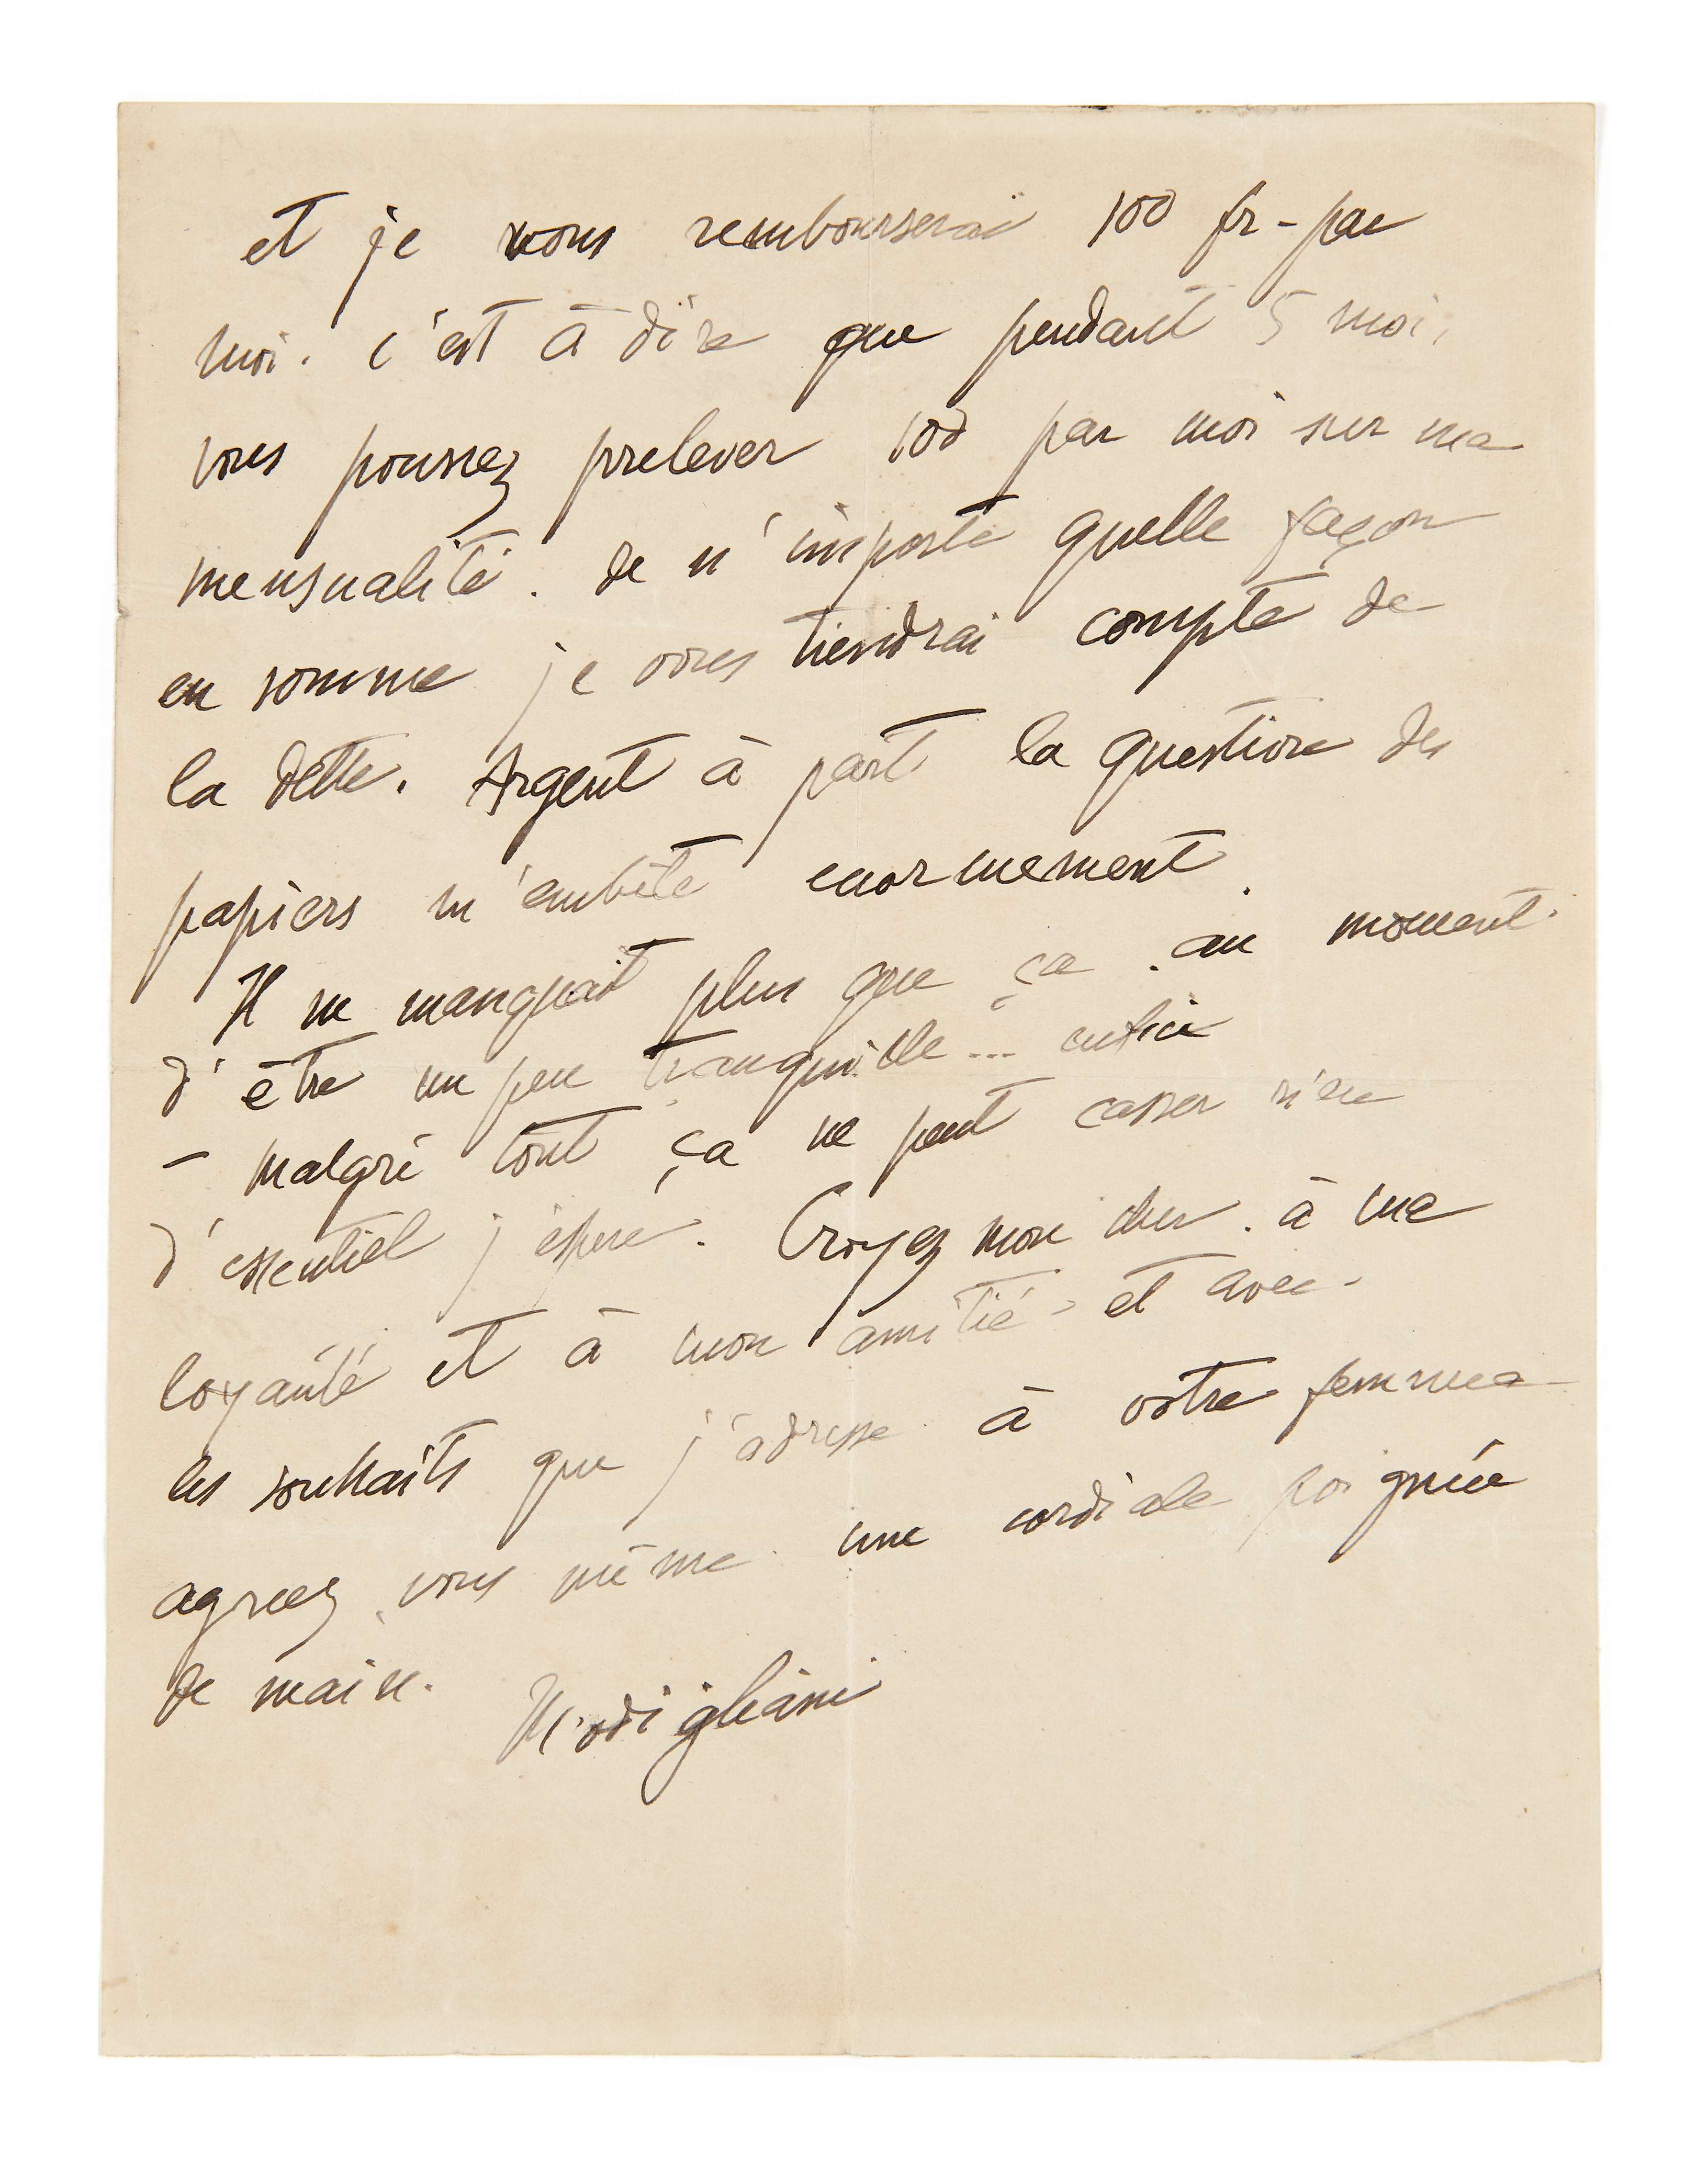 et je vous rembourserai 100 fr - par
moi. c'est à dire que pendant 5 moi,
vous pouvez prelever 100 par moi sur ma
mensualité. de n'importe quelle façon
en somme je vous tiendrai compte de
la dette. Argent à part la question des
papiers m'embête enormement.
Il ne manquait plus que ça. au moment.
d'être un peu tranquille... enfin
- malgré tout ça ne peut casser rien
d'essentiel j'espere. Croyez mon cher. à ma
loyauté et à mon amitié - et avec -
les souhaits que j'adresse à votre femme
agreez vous même une cordiale poignée
de main. Modigliani